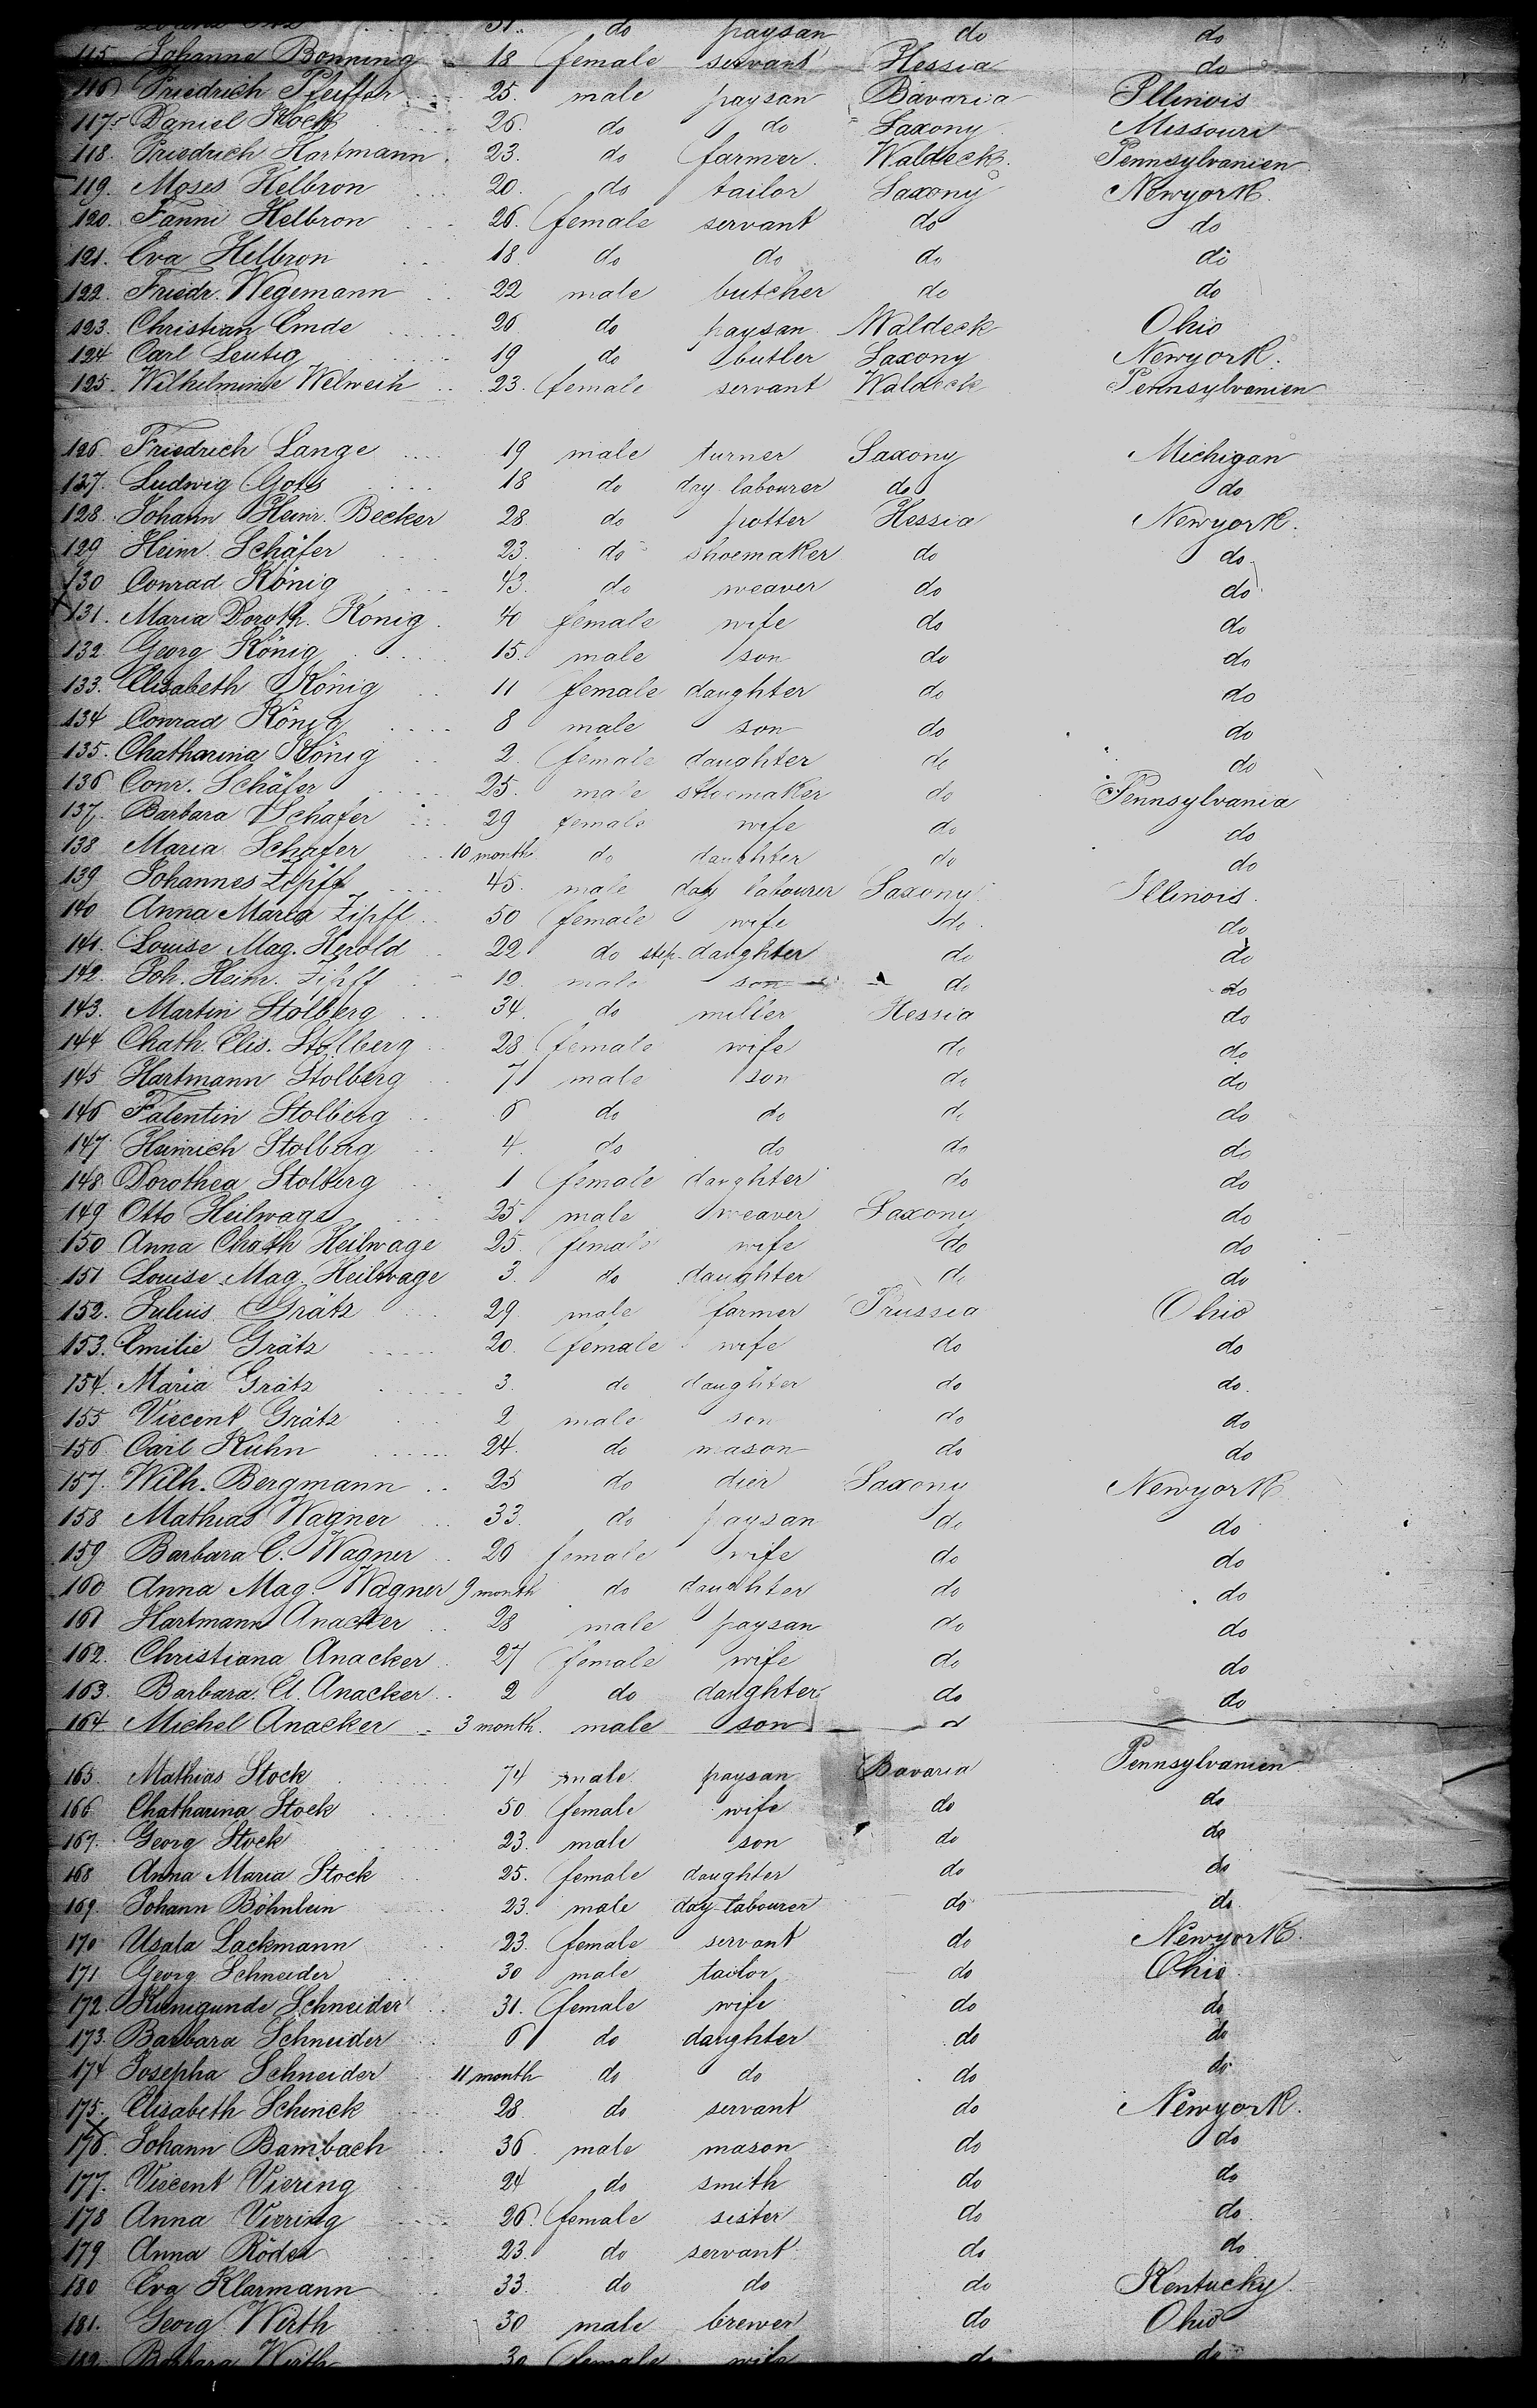 31. do paysan do do
115. Johanne Bonning 18 female servant Hessia do
116 Friedrich Pfeiffer 25. male paysan Bavaria Illinois
117. Daniel Kock 26. do do Saxony Missouri
118. Friedrich Hartmann 23. do farmer Waldeck Pennsylvanien
119. Moses Helbron 20. do tailor Saxony Newyork.
120. Fanni Helbron 26. female servant do do
121. Eva Helbron 18 do do do do
122. Friedr. Wegemann 22 male butcher do do
123. Christian Emde 26. do paysan Waldeck Ohio
124 Carl Leutig 19 do butler Saxony Newyork.
125. Wilhelmine Welweih 23. female servant Waldeck Pennsylvanien
126. Friedrich Lange 19 male turner Saxony Michigan
127. Ludwig Gots 18 do day labourer do do
128. Johann Heinr. Becker 28 do potter Hessia Newyork.
129 Heinr. Schäfer 23. do shoemaker do do
130 Conrad König 43. do weaver do do
131. Maria Doroth. Konig. 40 female wife do do
132 Georg König 15. male son do do
133. Elisabeth König 11 female daughter do do
134 Conrad König 8 male son do do
135. Chatharina König 2. female daughter do do
136 Conr. Schäfer 25. male shoemaker do Pennsylvania
137. Barbara Schafer 29 female wife do do
138 Maria Schafer 10 month do daughter do do
139 Johannes Zipff 45. male day labourer Saxony Illinois.
140 Anna Maria Zipff 50 female wife do do
141. Louise Mag. Herold 22 do step-daughter do do
142. Joh. Heinr. Zipff 12. male son do do
143. Martin Stolberg 34. do miller Hessia do
144 Chath. Elis. Stolberg 28 female wife do do
145 Hartmann Stolberg 7 male son do do
146 Falentin Stolberg 6 do do do do
147 Heinrich Stolberg 4. do do do do
148 Dorothea Stolberg 1 female daughter do do
149 Otto Heilwage 25. male weaver Saxony do
150 Anna Chath Heilwage 25. female wife do do
151 Louise Mag. Heilwage 3. do daughter do do
152. Julius Grätz 29 male farmer Prussia Ohio
153. Emilie Grätz 20. female wife do do
154. Maria Grätz 3. do daughter do do.
155 Viecent Grätz 2 male son do do
156 Carl Kühn 24. do mason do do
157. Wilh. Bergmann 25 do dier Saxony Newyork
158 Mathias Wagner 33. do paysan do do
159 Barbara C. Wagner 20 female wife do do
160 Anna Mag. Wagner 9 month do daughter do do
161 Hartmann Anacker 28 male paysan do do
162. Christiana Anacker 27 female wife do do
163. Barbara. El. Anacker 2 do daughter do do
164 Michel Anacker 3 month. male son d
165. Mathias Stock 74 male paysan Bavaria Pennsylvanien
166 Chatharina Stock 50 female wife do do
167. Georg Stock 23. male son do do
168 Anna Maria Stock 25. female daughter do do
169. Johann Böhnlein 23. male day-labourer do do.
170 Usala Lackmann 23. female servant do Newyork.
171 Georg Schneider 30 male tailor do Ohio
172. Kunigunde Schneider 31. female wife do do
173. Barbara Schneider 6 do daughter do do
174 Josepha Schneider 11 month do do do do
175. Elisabeth Schinck 28 do servant do Newyork.
176. Johann Bambach 36. male mason do do
177. Viecent Viering 24 do smith do do
178 Anna Viering 26. female sister do do
179 Anna Röder 23. do servant do do
180 Eva Klarmann 33. do do do Kentucky.
181. Georg Wirth 30 male brewer do Ohio
182. Barbara Wirth 30 female wife do do